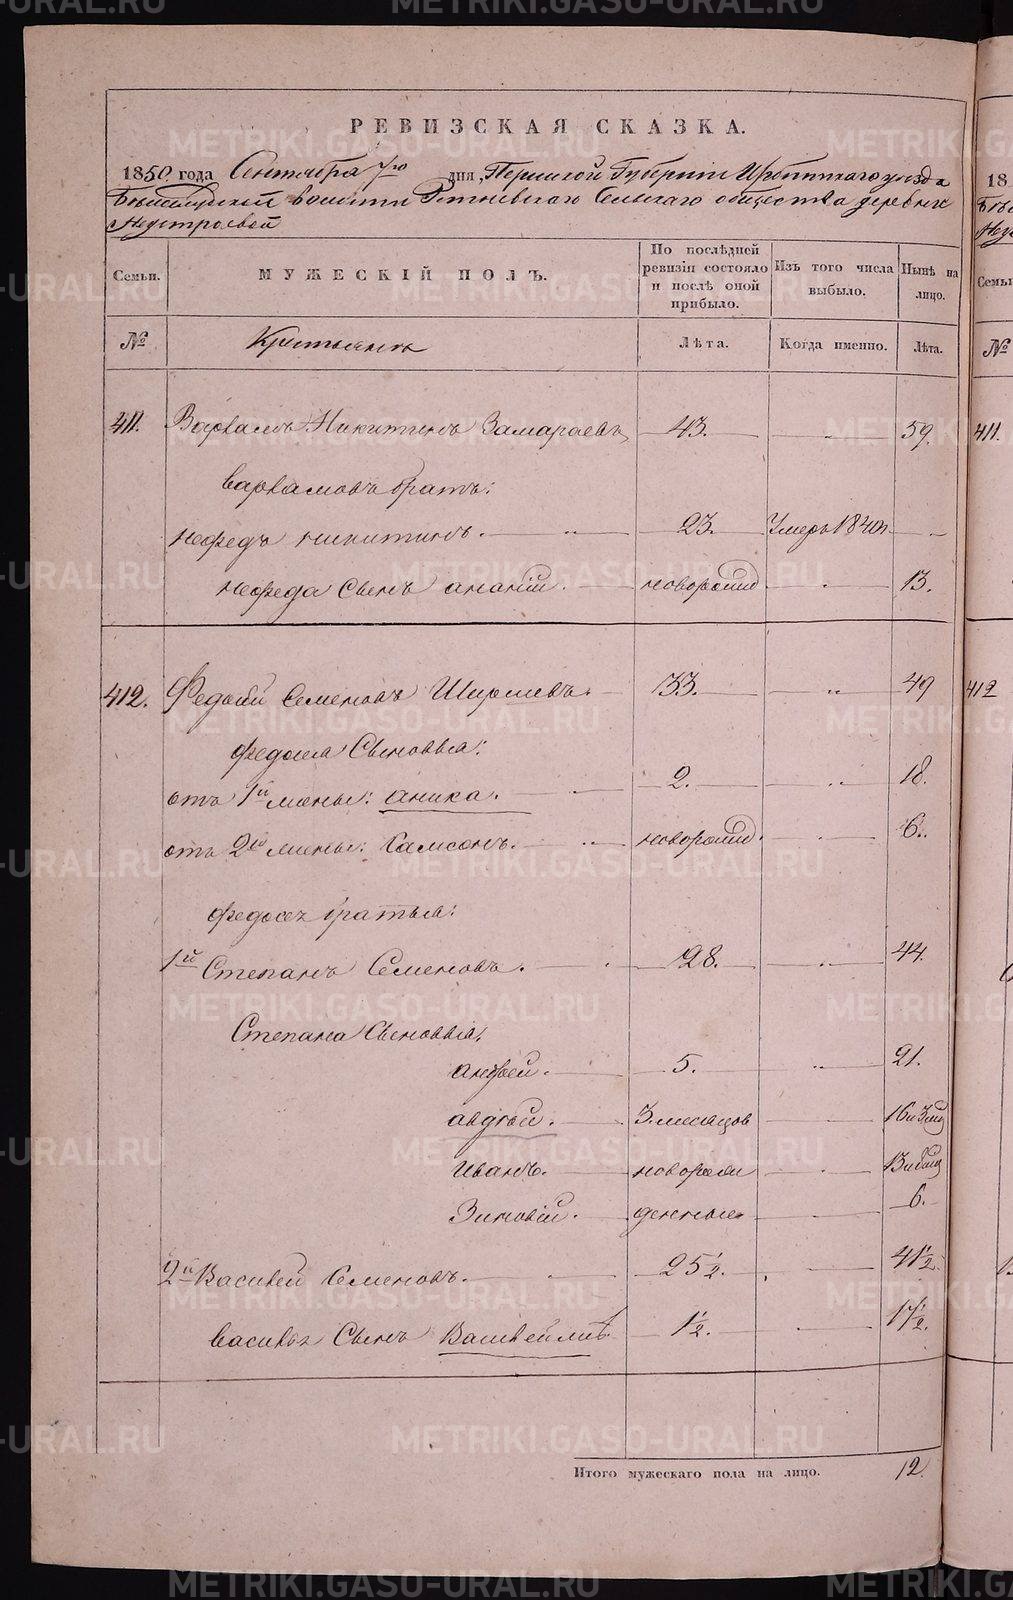 РЕВИЗСКАЯ СКАЗКА.
1850 года Сентября 7го дня, Пермской Губернии Ирбитскаго уезда
волости Сельскаго общества деревни
Семьи. МУЖЕСКІЙ ПОЛЪ. По послѣдней ревизіи состояло и послѣ оной прибыло. Изъ того числа выбыло. Нынѣ на лицо.
№ Крестьянъ Лѣта. Когда именно. Лѣта.
411. Варламъ Никитинъ Замараевъ 43. 59.
Варламовъ братъ:
Нефедъ Никитинъ. 23. Умеръ 1840
Нефеда Сынъ Ананій. новорожд 13.
412. Федосей Семеновъ Ширшевъ. 33. 49
Федосея Сыновья:
отъ 1й жены: Аника. 2. 18.
отъ 2й жены: Самсонъ. новорожд. 6.
Федосея братья:
1й Степанъ Семеновъ. 28. 44.
Степана Сыновья:
Андрей. 5. 21.
Авдѣй. 3 месяцов 16 и 3 мц
Иванъ. новорож 13 и 6 мц
Зиновій. денные 6.
2й Василей Семеновъ. 25½. 41½.
Василья Сынъ 1½. 17½.
Итого мужескаго пола на лицо. 12.
18
№
411.
412
METRIKI.GASO-URAL.RU